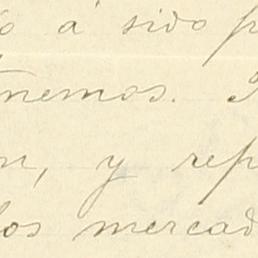 o á sido p
nemos. 
n, y rep
los mercad